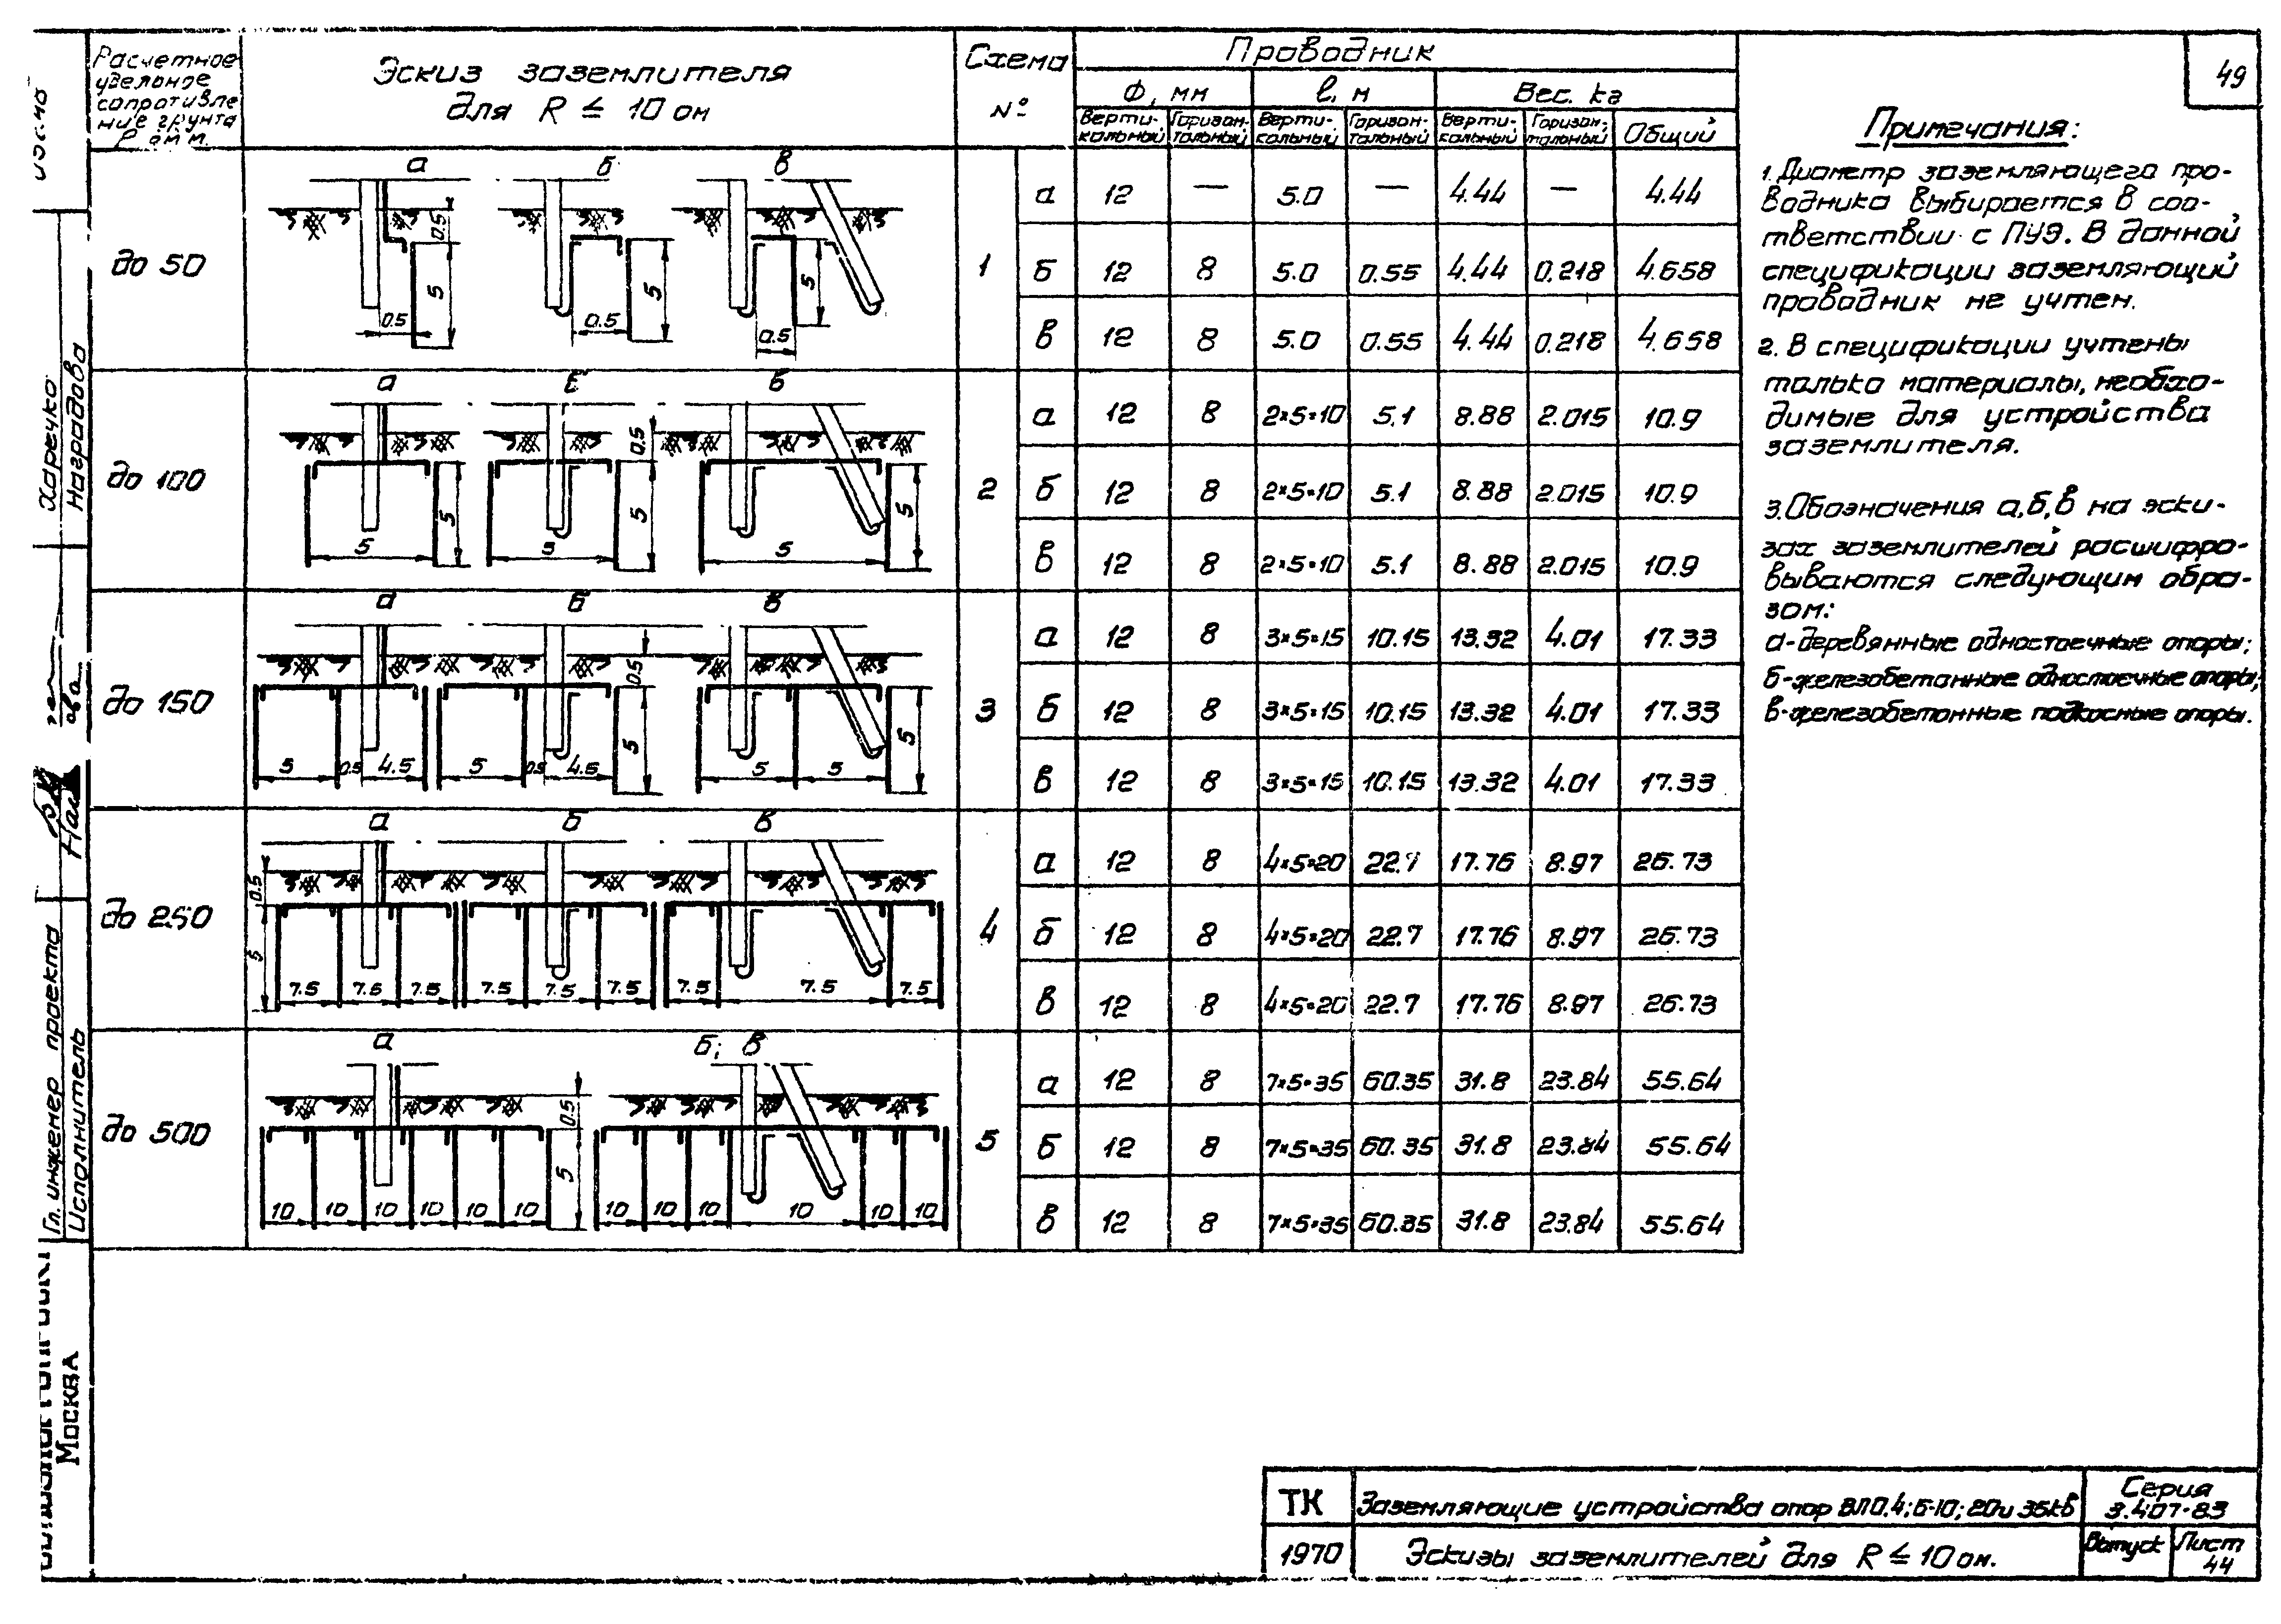 49
Расчетное
удельное
сопротивле
ние грунта
ρ ом м.
Эскиз заземлителя
для R ≤ 10 ом
Схема
№
Проводник
Ф, мм
ℓ, м
Вес. кг
Верти-
кальный
Горизон-
тальный
Верти-
кальный
Горизон-
тальный
Верти-
кальный
Горизон-
тальный
Общий
до 50
а б в
0.5 5 0.5 5 0.5 5 0.5
1
а 12 — 5.0 — 4.44 — 4.44
б 12 8 5.0 0.55 4.44 0.218 4.658
в 12 8 5.0 0.55 4.44 0.218 4.658
до 100
а б
0.5 5 5 5 5 5 5
2
а 12 8 2×5=10 5.1 8.88 2.015 10.9
б 12 8 2×5=10 5.1 8.88 2.015 10.9
в 12 8 2×5=10 5.1 8.88 2.015 10.9
до 150
а б в
0.5 5 5
5 0.5 4.5 5 0.5 4.5 5 5
3
а 12 8 3×5=15 10.15 13.32 4.01 17.33
б 12 8 3×5=15 10.15 13.32 4.01 17.33
в 12 8 3×5=15 10.15 13.32 4.01 17.33
до 250
а б в
0.5 5
7.5 7.5 7.5 7.5 7.5 7.5 7.5 7.5 7.5
4
а 12 8 4×5=20 22.7 17.76 8.97 26.73
б 12 8 4×5=20 22.7 17.76 8.97 26.73
в 12 8 4×5=20 22.7 17.76 8.97 26.73
до 500
а б; в
0.5 5
10 10 10 10 10 10 10 10 10 10 10 10
5
а 12 8 7×5=35 60.35 31.8 23.84 55.64
б 12 8 7×5=35 60.35 31.8 23.84 55.64
в 12 8 7×5=35 60.35 31.8 23.84 55.64
Примечания:
1. Диаметр заземляющего про-
водника выбирается в соо-
тветствии с ПУЭ. В данной
спецификации заземляющий
проводник не учтен.
2. В спецификации учтены
только материалы, необхо-
димые для устройства
заземлителя.
3. Обозначения а, б, в на эски-
зах заземлителей расшифро-
вываются следующим обра-
зом:
а-деревянные одностоечные опоры;
б-железобетонные одностоечные опоры;
в-железобетонные подкосные опоры.
Харечко
Наградова
Гл. инженер проекта
Исполнитель
Москва
ТК
Заземляющие устройства опор ВЛ 0,4; 6-10; 20 и 35кв
Серия
3.407-83
1970
Эскизы заземлителей для R ≤ 10 ом.
Выпуск
Лист
44